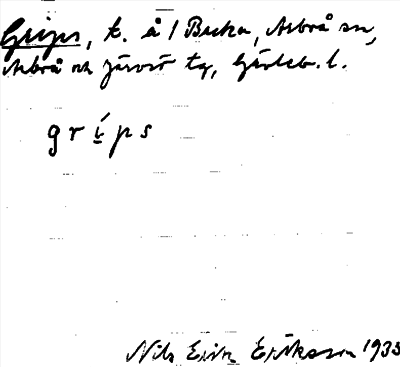 Grips, t. å / Backa, Arbrå sn,
Arbrå och Järvsö tg, Gävleb. l.
grips
Nils Erik Eriksson 1935